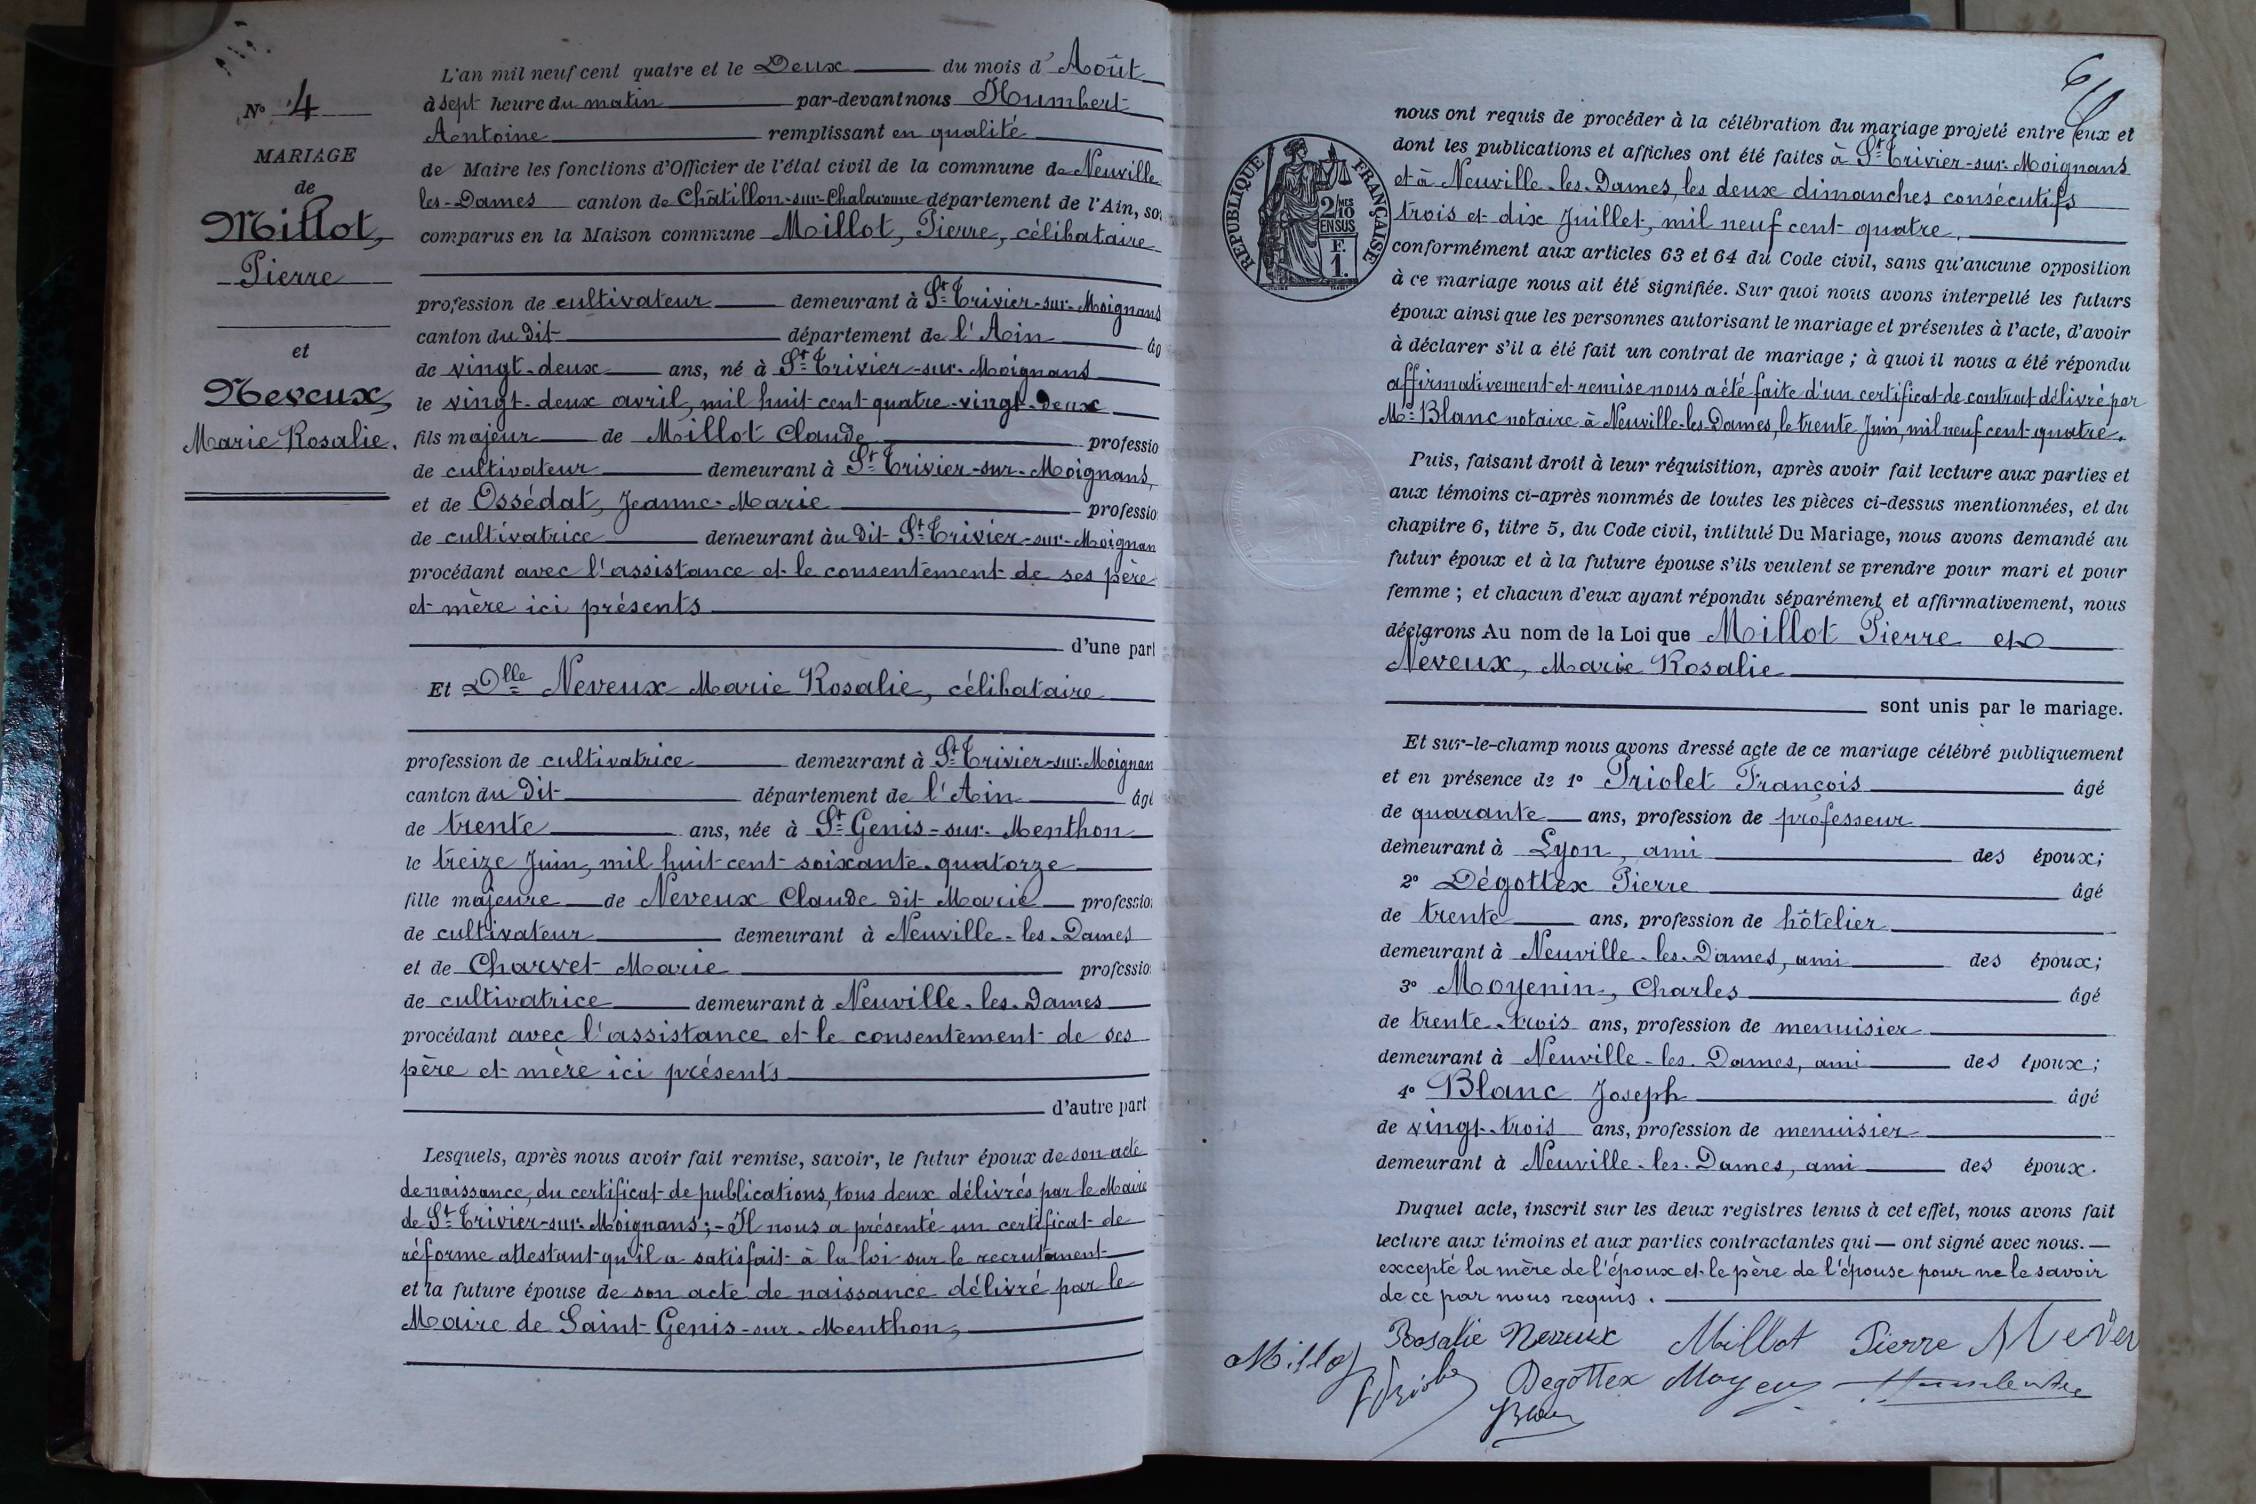 N° 4
MARIAGE
de
Millot,
Pierre
et
Neveux,
Marie Rosalie.
L'an mil neuf cent quatre et le Deux du mois d'Août
à sept heure du matin par-devant nous Humbert
Antoine remplissant en qualité
de Maire les fonctions d'Officier de l'état civil de la commune de Neuville
les-Dames canton de Châtillon-sur-Chalaronne département de l'Ain, so
comparus en la Maison commune Millot, Pierre, célibataire
profession de cultivateur demeurant à St Trivier-sur-Moignans
canton du dit département de l'Ain âg
de vingt-deux ans, né à St Trivier-sur-Moignans
le vingt-deux avril, mil huit cent quatre-vingt-deux
fils majeur de Millot Claude professio
de cultivateur demeurant à St Trivier-sur-Moignans,
et de Ossédat, Jeanne-Marie professio
de cultivatrice demeurant àu dit St Trivier-sur-Moignan
procédant avec l'assistance et le consentement de ses père
et mère ici présents
d'une part
Et Dlle Neveux Marie Rosalie, célibataire
profession de cultivatrice demeurant à St Trivier-sur-Moignan
canton du dit département de l'Ain âgé
de trente ans, née à St Genis-sur-Menthon
le treize Juin, mil huit-cent soixante-quatorze
fille majeure de Neveux Claude dit Marie professio
de cultivateur demeurant à Neuville-les-Dames
et de Charvet Marie professio
de cultivatrice demeurant à Neuville-les-Dames
procédant avec l'assistance et le consentement de ses
père et mère ici présents
d'autre part
Lesquels, après nous avoir fait remise, savoir, le futur époux de son acte
de naissance, du certificat de publications, tous deux délivrés par le Maire
de St Trivier-sur-Moignans; - Il nous a présenté un certificat de
réforme attestant qu'il a satisfait à la loi sur le recrutement
et la future épouse de son acte de naissance délivré par le
Maire de Saint-Genis-sur-Menthon,
RÉPUBLIQUE FRANÇAISE
2/10 MES
EN SUS
F.
1.
nous ont requis de procéder à la célébration du mariage projeté entre eux et
dont les publications et affiches ont été faites à St Trivier-sur-Moignans
et à Neuville-les-Dames, les deux dimanches consécutifs
trois et dix Juillet, mil neuf cent quatre,
conformément aux articles 63 et 64 du Code civil, sans qu'aucune opposition
à ce mariage nous ait été signifiée. Sur quoi nous avons interpellé les futurs
époux ainsi que les personnes autorisant le mariage et présentes à l'acte, d'avoir
à déclarer s'il a été fait un contrat de mariage ; à quoi il nous a été répondu
affirmativement et remise nous a été faite d'un certificat de contrat délivré par
Me Blanc notaire à Neuville-les-Dames, le trente Juin, mil neuf cent quatre.
Puis, faisant droit à leur réquisition, après avoir fait lecture aux parties et
aux témoins ci-après nommés de toutes les pièces ci-dessus mentionnées, et du
chapitre 6, titre 5, du Code civil, intitulé Du Mariage, nous avons demandé au
futur époux et à la future épouse s'ils veulent se prendre pour mari et pour
femme ; et chacun d'eux ayant répondu séparément et affirmativement, nous
déclarons Au nom de la Loi que Millot Pierre et
Neveux, Marie Rosalie
sont unis par le mariage.
Et sur-le-champ nous avons dressé acte de ce mariage célébré publiquement
et en présence de 1° Priolet François âgé
de quarante ans, profession de professeur
demeurant à Lyon, ami des époux;
2° Dégottex Pierre âgé
de trente ans, profession de hôtelier
demeurant à Neuville-les-Dames, ami des époux;
3° Moyenin, Charles âgé
de trente-trois ans, profession de menuisier
demeurant à Neuville-les-Dames, ami des époux;
4° Blanc Joseph âgé
de vingt-trois ans, profession de menuisier
demeurant à Neuville-les-Dames, ami des époux.
Duquel acte, inscrit sur les deux registres tenus à cet effet, nous avons fait
lecture aux témoins et aux parties contractantes qui — ont signé avec nous. —
excepté la mère de l'époux et le père de l'épouse pour ne le savoir
de ce par nous requis.
Rosalie Neveux Millot Pierre
Millot Degottex
Blanc